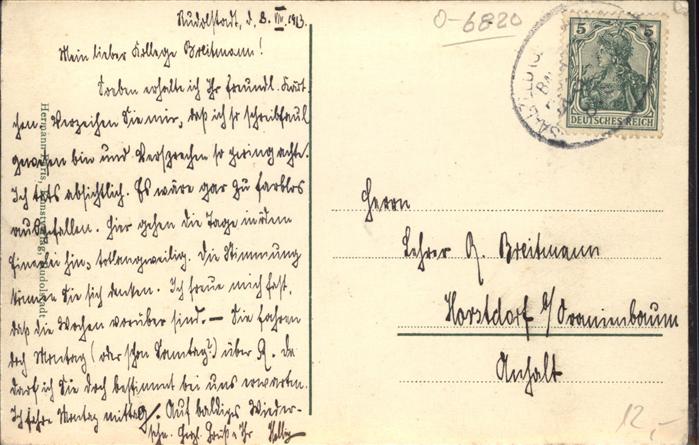 Rudolstadt, d. 8. VIII. 1913.
Mein lieber Kollege Breitmann!
Soeben erhalte ich Ihr freundl. Kärt-
chen. Verzeihen Sie mir, daß ich so schreibfaul
gewesen bin und Versprechen so gering achte.
Ich tat's absichtlich. Es wäre gar zu farblos
ausgefallen. Hier gehen die Tage in dem
Einerlei hin, totlangweilig. Die Stimmung
können Sie sich denken. Ich freue mich fast,
daß die Wochen vorüber sind. — Sie fahren
doch Montag (oder schon Sonntag?) über R. da
darf ich Sie doch bestimmt bei uns erwarten.
Ich fahre Montag mittag. Auf baldiges Wieder-
sehn. Herzl. Gruß Ihr
Herrn
Lehrer R. Breitmann
Horstdorf b/Oranienbaum
Anhalt
0-6820
5 5
DEUTSCHES REICH
12,-